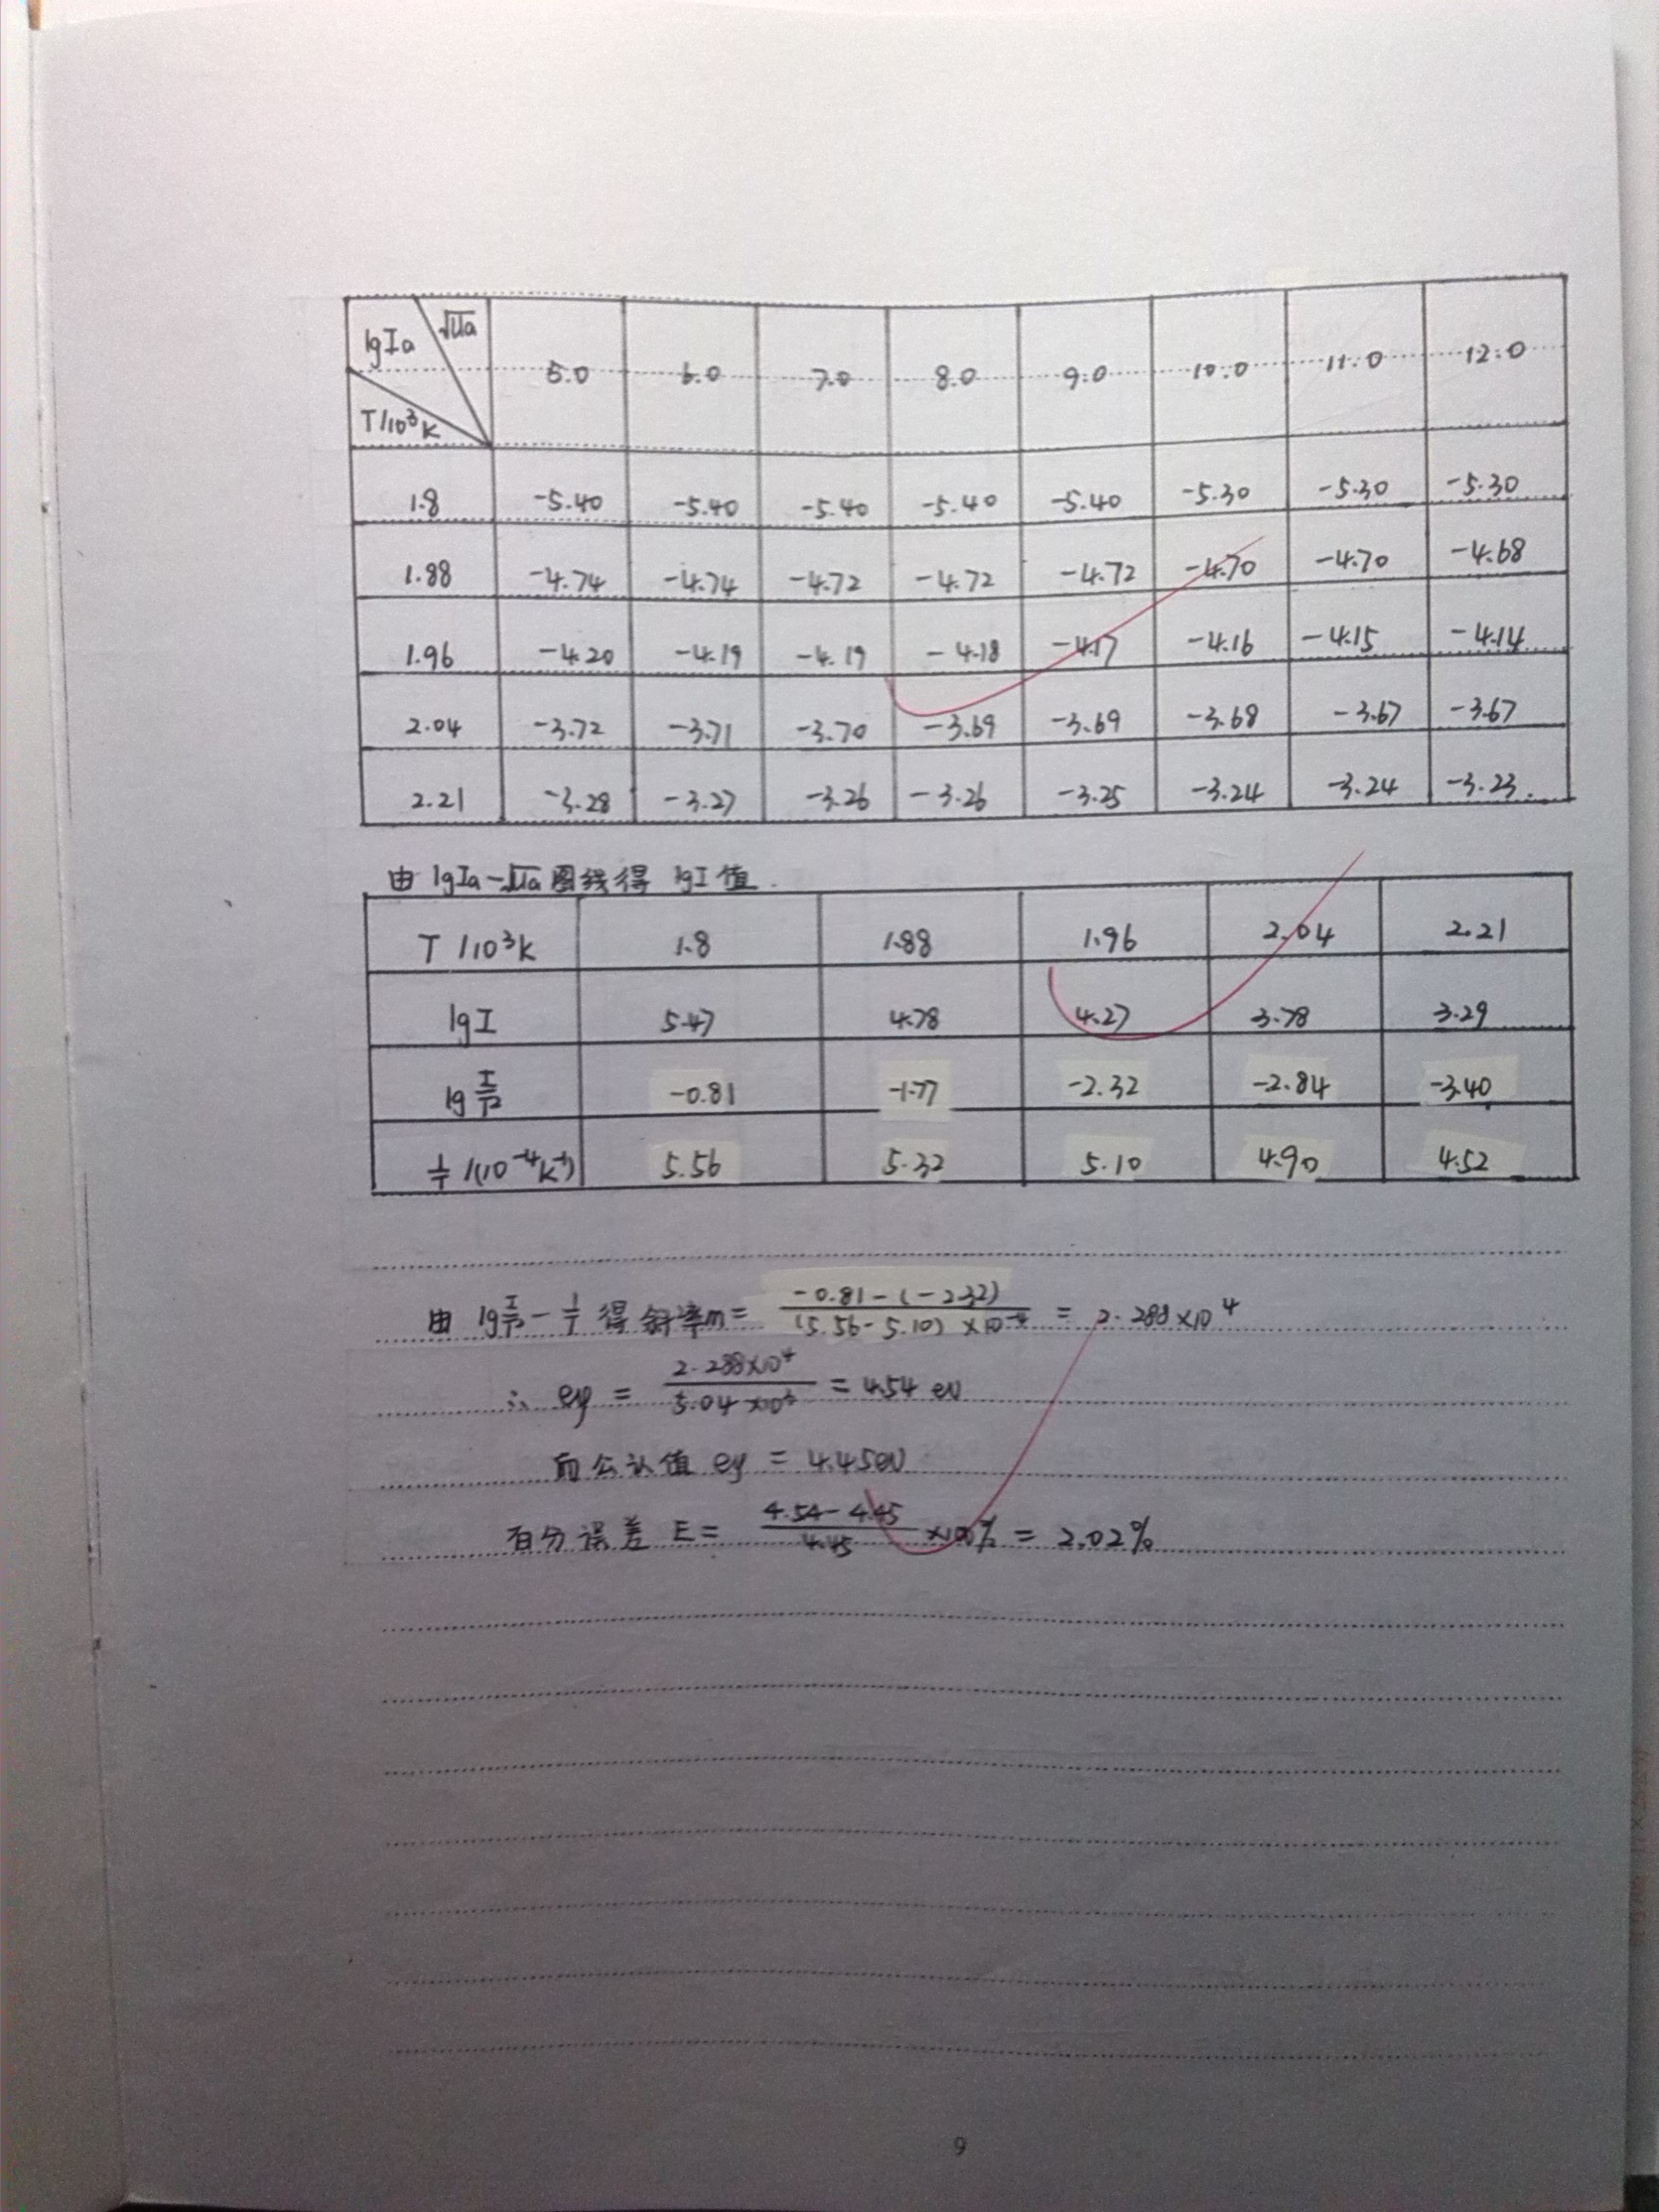 lgIa √Ua T/10³K 5.0 6.0 7.0 8.0 9.0 10.0 11.0 12.0
1.8 -5.40 -5.40 -5.40 -5.40 -5.40 -5.30 -5.30 -5.30
1.88 -4.74 -4.74 -4.72 -4.72 -4.72 -4.70 -4.70 -4.68
1.96 -4.20 -4.19 -4.19 -4.18 -4.17 -4.16 -4.15 -4.14
2.04 -3.72 -3.71 -3.70 -3.69 -3.69 -3.68 -3.67 -3.67
2.21 -3.28 -3.27 -3.26 -3.26 -3.25 -3.24 -3.24 -3.23
由 lgIa-√Ua 图线得 lgI 值.
T /10³K 1.8 1.88 1.96 2.04 2.21
lgI 5.47 4.78 4.27 3.78 3.29
lg I/T² -0.81 -1.77 -2.32 -2.84 -3.40
1/T /(10⁻⁴K⁻¹) 5.56 5.32 5.10 4.90 4.52
由 lg I/T² - 1/T 得 斜率m = (-0.81-(-2.32))/((5.56-5.10)×10⁻⁴) = 2.288×10⁴
∴ eφ = (2.288×10⁴)/(5.04×10³) = 4.54 eV
而公认值 eφ = 4.45eV
百分误差 E = (4.54-4.45)/4.45 ×100% = 2.02%
9